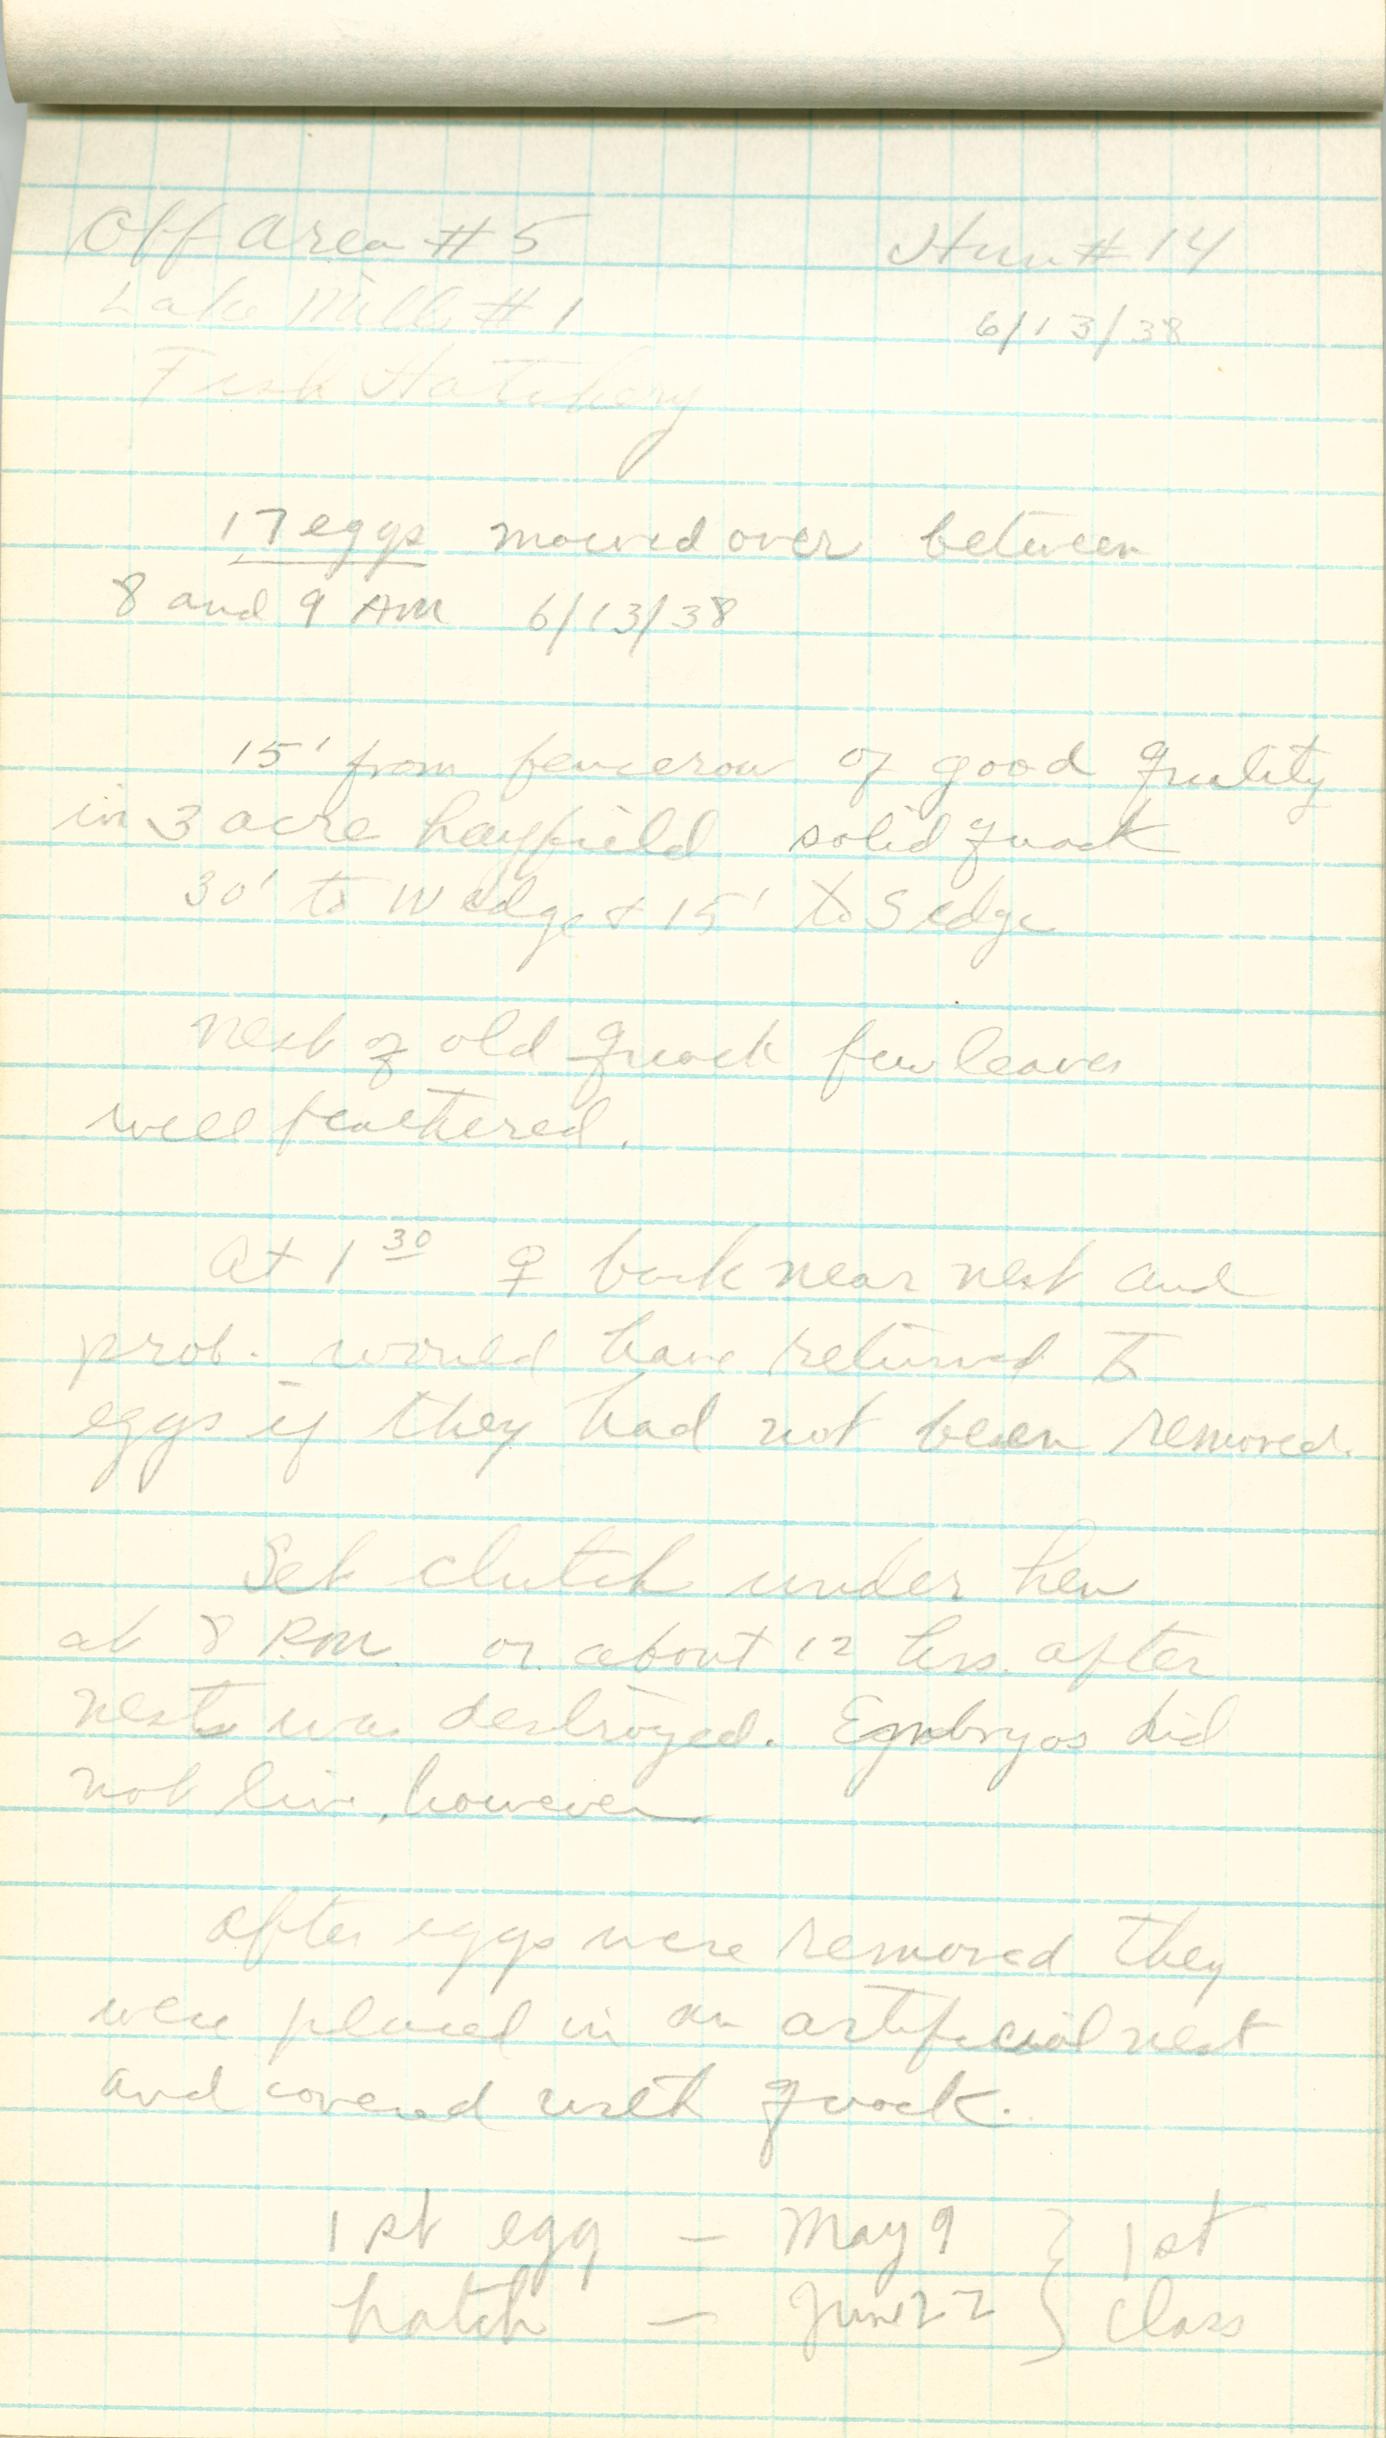 Off Area # 5 Hun # 14
Lake Mills # 1 6/13/38
Fish Hatchery
17 eggs mowed over between
8 and 9 AM 6/13/38
15' from fencerow of good quality
in 3 acre hayfield solid quack
30' to W edge & 15' to S edge
Nest of old quack few leaves
well feathered.
At 1 30 ♀ back near nest and
prob. would have returned to
eggs if they had not been removed.
Set clutch under hen
at 8 P.M. or about 12 hrs. after
nest was destroyed. Embryos did
not live, however
After eggs were removed they
were placed in an artificial nest
and covered with quack.
1st egg — May 9 } 1st
hatch — June 22 } class